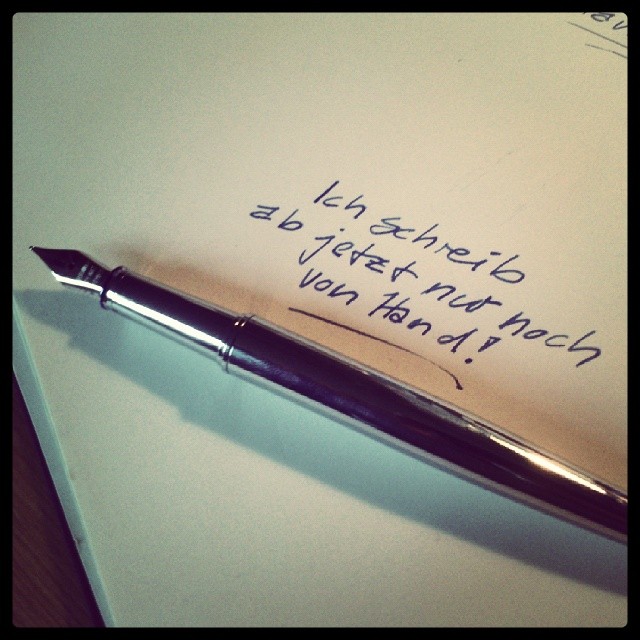 Ich schreib
ab jetzt nur noch
von Hand!